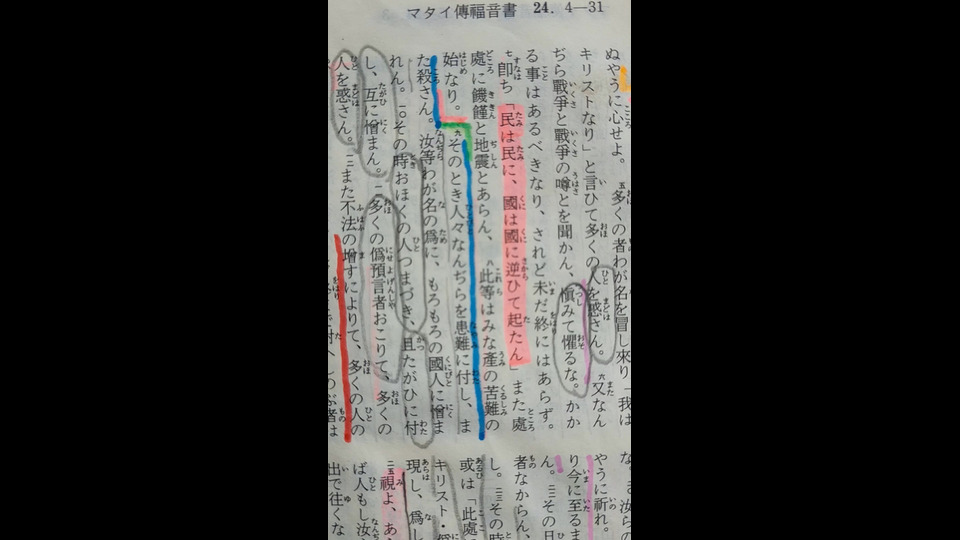 マタイ傳福音書 24. 4―31
ぬやうに心せよ。 五多くの者わが名を冒し來り『我は
キリストなり』と言ひて多くの人を惑さん。 六又なん
ぢら戰爭と戰爭の噂とを聞かん、愼みて懼るな。かか
る事はあるべきなり、されど未だ終にはあらず。
七卽ち「民は民に、國は國に逆ひて起たん」また處
處に饑饉と地震とあらん、 八此等はみな產の苦難の
始なり。 九そのとき人々なんぢらを患難に付し、ま
た殺さん。汝等わが名の爲に、もろもろの國人に憎ま
れん。 一〇その時おほくの人つまづき、且たがひに付
し、互に憎まん。 一一多くの僞預言者おこりて、多くの
人を惑さん。 一二また不法の增すによりて、多くの人の
やうに祈れ。
り今に至るま
ん。 二二その日
者なからん、
し。 二三その時
或は「此處
キリスト・僞
現し、爲し
二五視よ、あ
ば人もし汝
出で往くな